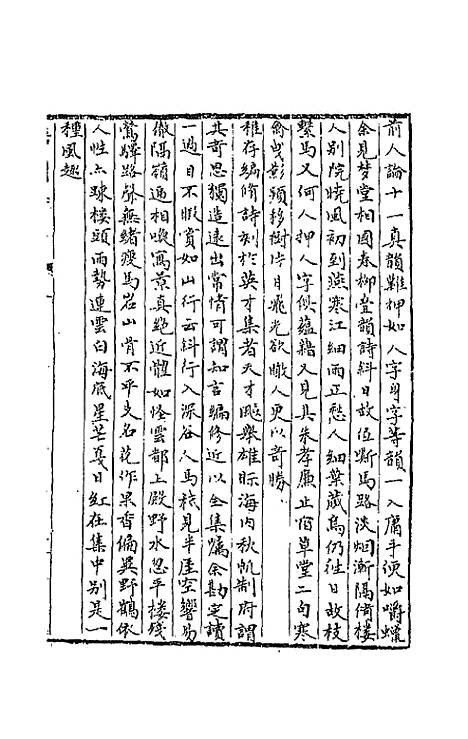 前人論十一真韻難押如人字身字等韻一入庸手便如嚼蠟
余見梦堂相國春柳叠韻詩斜日故伍嘶馬路淡烟漸隔倚樓
人别院晓風初到燕寒江細雨正愁人細葉藏烏仍往日故枝
繫馬又何人押人字似蘊藉又見其朱孝廉止宿草堂二句寒
禽曳影頻移樹片月飛光欲瞰人更以奇勝
稚存編脩詩刻於英才集者天才飈舉雄眎海内秋帆制府謂
其奇思獨造遠出常情可謂知言編修近以全集囑余勘定讀
一過目不暇賞如山行云斜行入深谷人馬杳見半厓空響易
徹隔嶺通相喚寓景真絶近體如怪雲都上殿野水忽平樓殘
鶯驛路聲無緒瘦馬岩山骨不平支名花作果香偏異野鶴依
人性亦踈樓頭雨勢連雲白海底星芒戛日紅在集中别是一
種風趣